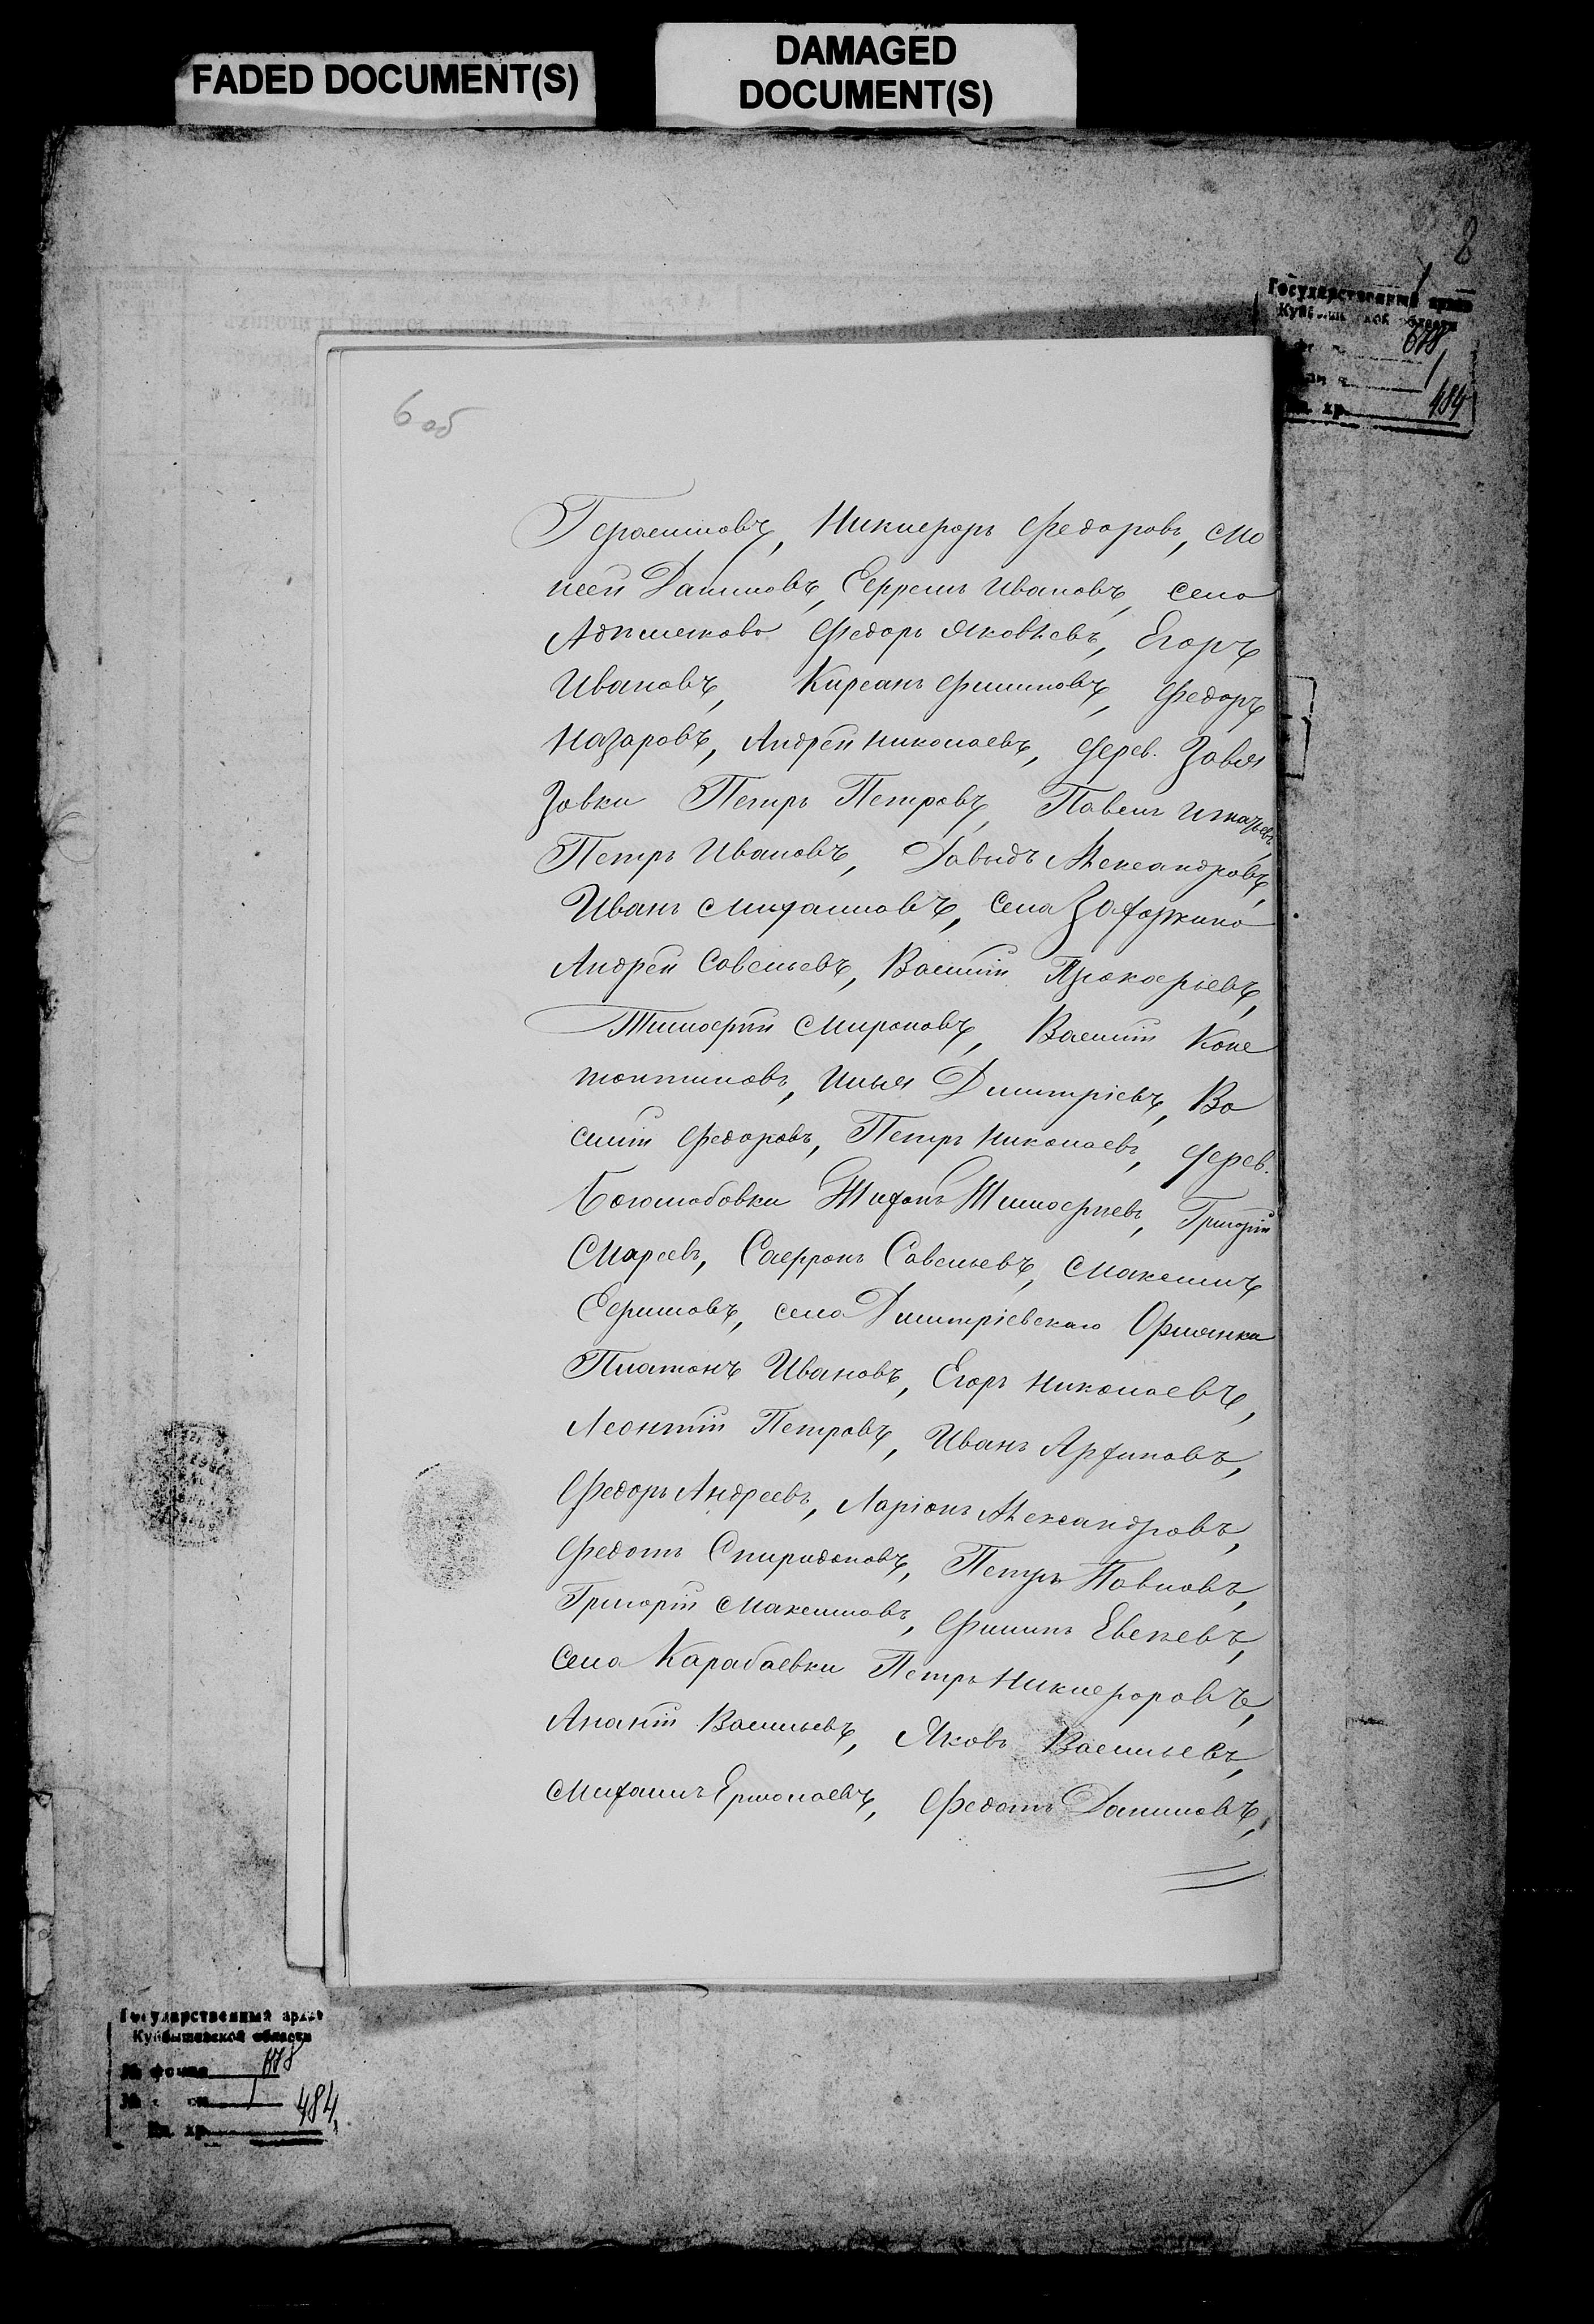 FADED DOCUMENT(S)
DAMAGED
DOCUMENT(S)
8
Государственный архив
Куйбышевской области
678
1
Ед. хр. 484
6 об
Герасимовъ, Никифоръ Федоровъ, Мо
исей Даниловъ, Ефремъ Ивановъ, села
Федоръ Яковлевъ, Егоръ
Ивановъ, Кирсанъ Филиповъ, Федоръ
Назаровъ, Андрей Николаевъ, дерев. Завья
зовки Петръ Петровъ, Павелъ Игнатьевъ,
Петръ Ивановъ, Давыдъ Александровъ,
Иванъ Михаиловъ, села Захоркино
Андрей Савельевъ, Василій Прокофьевъ,
Тимофей Мироновъ, Василій Конс
тантиновъ, Илья Димитріевъ, Ва
силій Федоровъ, Петръ Николаевъ, дерев.
Боголюбовки Тихонъ Тимофеевъ, Григорій
Сафронъ Савельевъ, Максимъ
Ефимовъ, села Димитріевскаго Орлянка
Платонъ Ивановъ, Егоръ Николаевъ,
Леонтій Петровъ, Иванъ Архиповъ,
Федоръ Андреевъ, Ларіонъ Александровъ,
Федотъ Спиридоновъ, Петръ Павловъ,
Григорій Максимовъ, Филипъ
села Карабаевки Петръ Никифоровъ,
Ананій Васильевъ, Яковъ Васильевъ,
Михаилъ Ермолаевъ, Федотъ Даниловъ,
Государственный архив
Куйбышевской области
№ фонда 678
№ 1
Ед. хр. 484